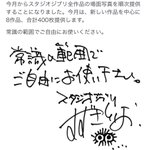 今月からスタジオジブリ全作品の場面写真を順次提供
することになりました。今月は、新しい作品を中心に
8作品、合計400枚提供します。
常識の範囲でご自由にお使いください。
常識の範囲で
ご自由にお使い下さい。
スタジオジブリ